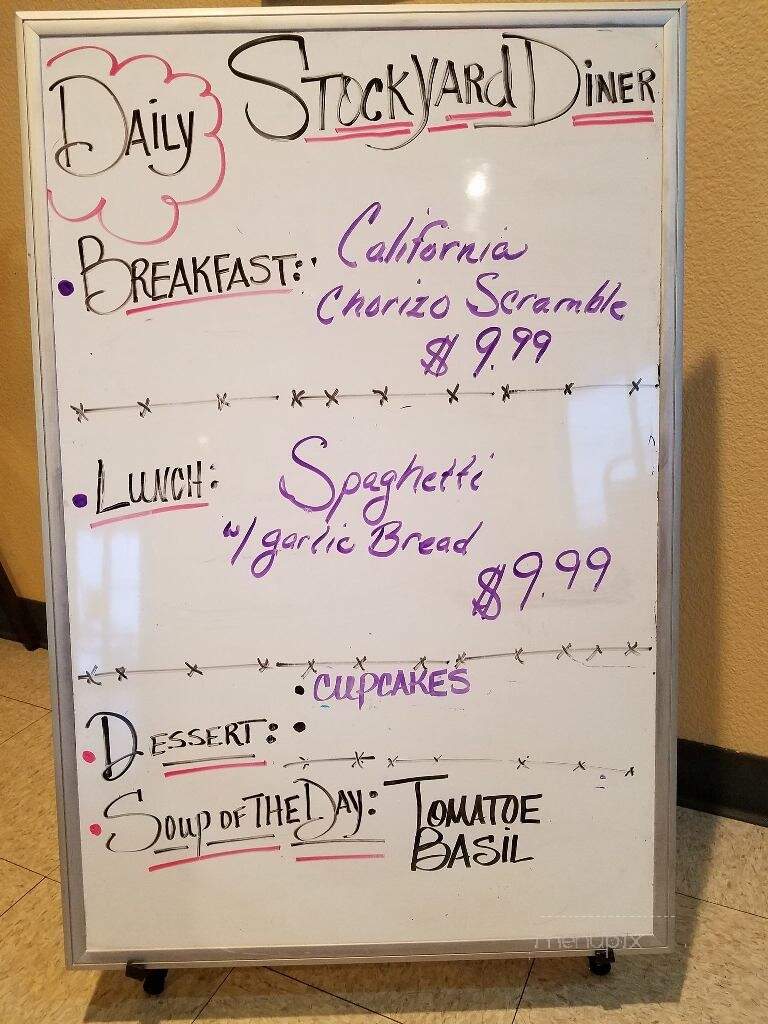 Daily Stockyard Diner
• Breakfast: California
Chorizo Scramble
$9.99
• Lunch: Spaghetti
w/ garlic Bread
$9.99
• CUPCAKES
• Dessert: •
• Soup of the Day: TOMATOE
BASIL
menupix